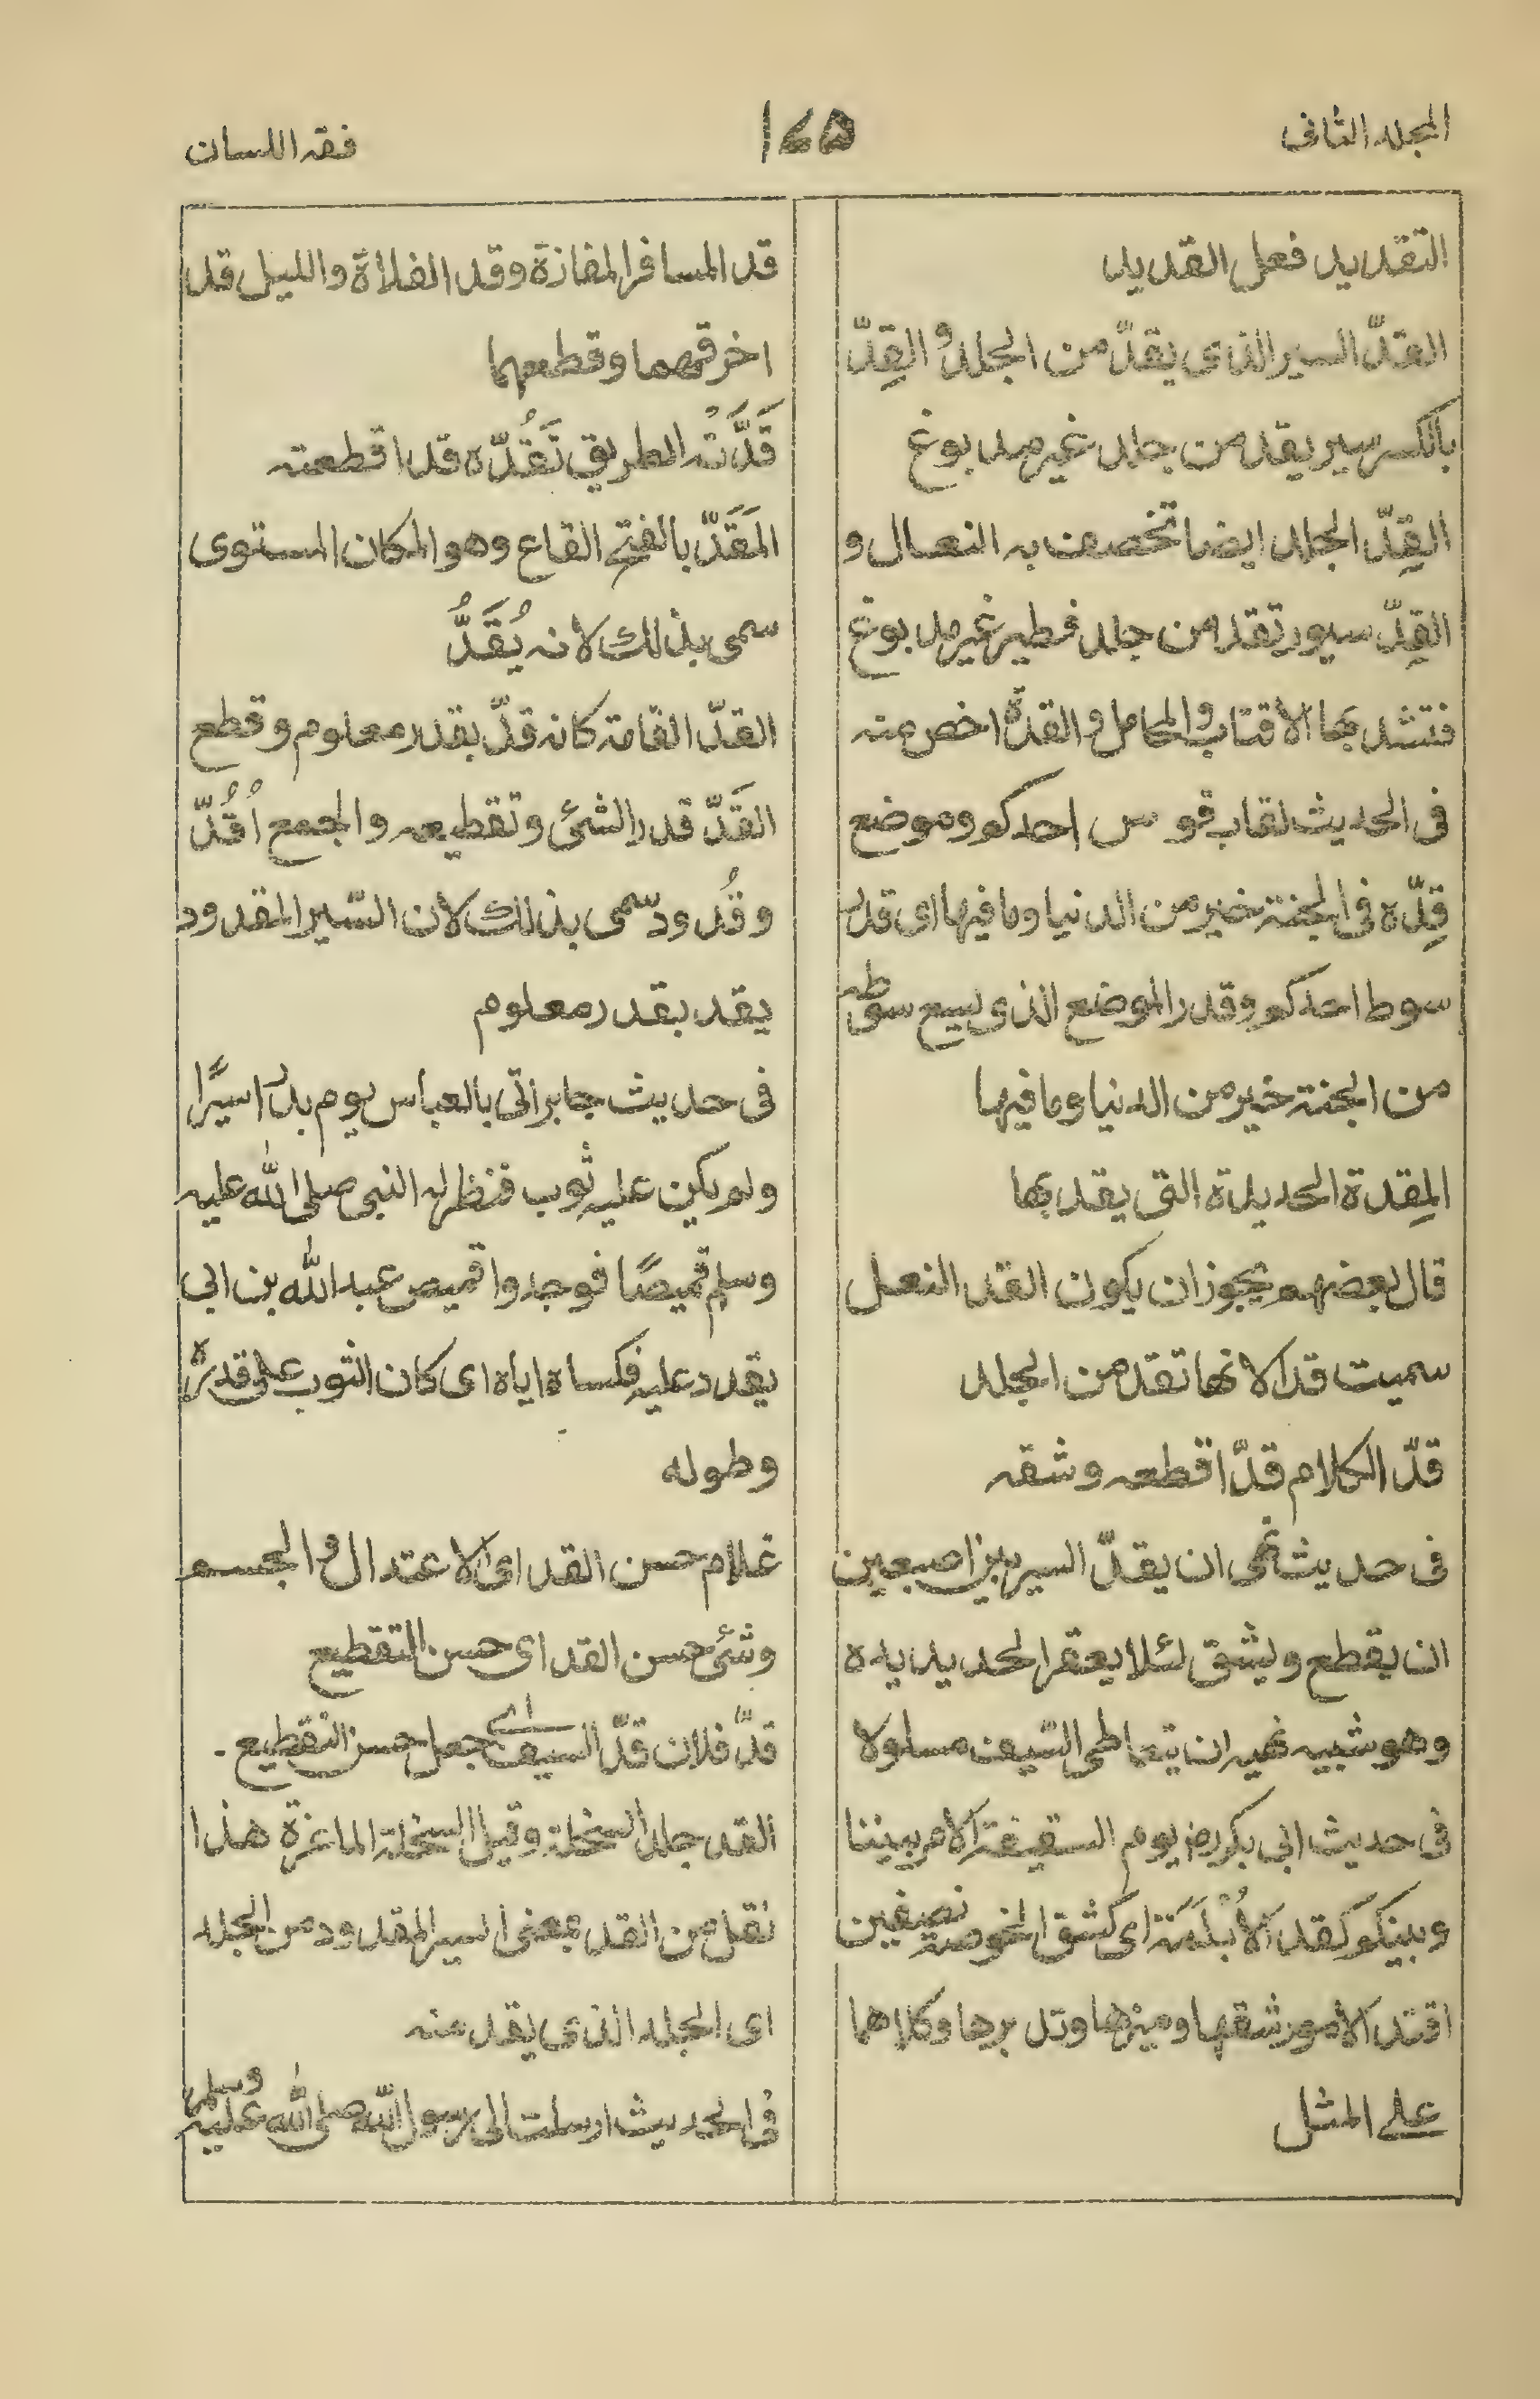 المجلد الثانى
۱۷۵
فقه اللسان
التقديد فعل القديد
القدّ السير الذى يقدّ من الجلد و القِدّ
بالكسر سير يقد من جلد غير مدبوغ
القِدّ الجلد ايضا تخصف به النعال و
القِدّ سيور تقد من جلد فطير غير مدبوغ
فتشد بها الاقتاب والمحامل و القدّة اخص منه
فى الحديث لقاب قوس احدكم وموضع
قِدّه فى الجنة خير من الدنيا وما فيها اى قدر
سوط احدكم وقدر الموضع الذى يسع سوطه
من الجنة خير من الدنيا وما فيها
المِقدة الحديدة التى يقد بها
قال بعضهم يجوز ان يكون القد النعل
سميت قدا لانها تقد من الجلد
قدّ الكلام قدّا قطعه وشقه
فى حديث نهى ان يقدّ السير بين اصبعين
ان يقطع ويشق لئلا يعقر الحديد يده
وهو شبيه نهيه ان يتعاطى السّيف مسلولا
فى حديث ابى بكر رض يوم السقيفة الامر بيننا
وبينكم كقد الاُبْلَمَة اى كشق الخوصة نصفين
اقتد الامور شقها وميزها وتدبرها وكلاهما
على المثل
قد المسافر المفازة وقد الفلاة والليل قدا
خرقهما وقطعهما
قَدَّتْه الطريق تَقُدّه قدا قطعته
المَقَدّ بالفتح القاع وهو المكان المستوى
سمى بذلك لانه يُقَدُّ
القدّ القامة كانه قدّ بقدر معلوم وقطع
القَدّ قدر الشئ وتقطيعه والجمع اُقُدّ
وقُدود سمى بذلك لان السّير المقدود
يقد بقدر معلوم
فى حديث جابر اتى بالعباس يوم بدر اسيرًا
ولم يكن عليه ثوب فنظر له النبى صلى الله عليه
وسلم قميصًا فوجدوا قميص عبدالله بن ابى
يقدد عليه فكساه اياه اى كان الثوب على قدره
وطوله
غلام حسن القد اى الاعتدال و الجسم
وشئ حسن القد اى حسن التقطيع
قدّ فلان قدّ السيف اى جعل حسن التقطيع -
القد جلد السخلة وقيل السخلة الماعزة هذا
نقل من القد بمعنى السير المقدود من الجلد
اى الجلد الذى يقد منه
فى الحديث ارسلت الى رسول الله صلى الله عليه وسلم